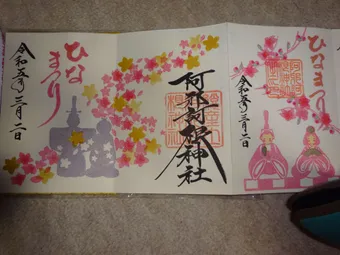 ひなまつり
令和五年三月二日
阿邪訶根神社
ひな
まつり
令和五年三月二日